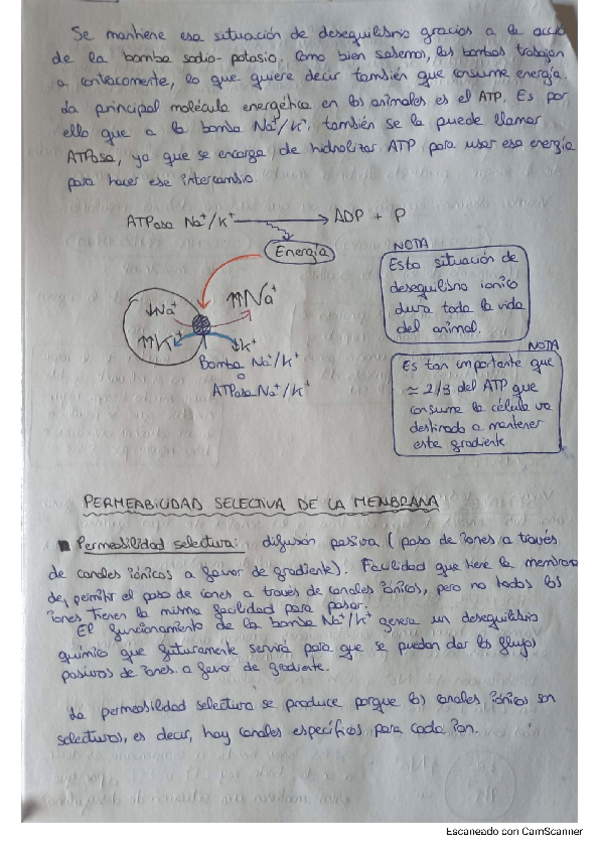 Se mantiene esa situación de desequilibrio gracias a la acción
de la bomba sodio-potasio. Como bien sabemos, las bombas trabajan
a contracorriente, lo que quiere decir también que consume energía.
La principal molécula energética en los animales es el ATP. Es por
ello que a la bomba Na⁺/K⁺, también se la puede llamar
ATPasa, ya que se encarga de hidrolizar ATP para usar esa energía
para hacer ese intercambio.
ATPasa Na⁺/K⁺ → ADP + P
Energía
↓Na⁺
⇈Na⁺
⇈K⁺
↓K⁺
Bomba Na⁺/K⁺
o
ATPasa Na⁺/K⁺
NOTA
Esta situación de
desequilibrio iónico
dura toda la vida
del animal.
NOTA
Es tan importante que
≃ 2/3 del ATP que
consume la célula va
destinado a mantener
este gradiente
PERMEABILIDAD SELECTIVA DE LA MEMBRANA
■ Permeabilidad selectiva: difusión pasiva (paso de iones a través
de canales iónicos a favor de gradiente). Facilidad que tiene la membrana
de permitir el paso de iones a través de canales iónicos, pero no todos los
iones tienen la misma facilidad para pasar.
El funcionamiento de la bomba Na⁺/K⁺ genera un desequilibrio
químico que futuramente servirá para que se puedan dar los flujos
pasivos de iones a favor de gradiente.
La permeabilidad selectiva se produce porque los canales iónicos son
selectivos, es decir, hay canales específicos para cada ion.
Escaneado con CamScanner